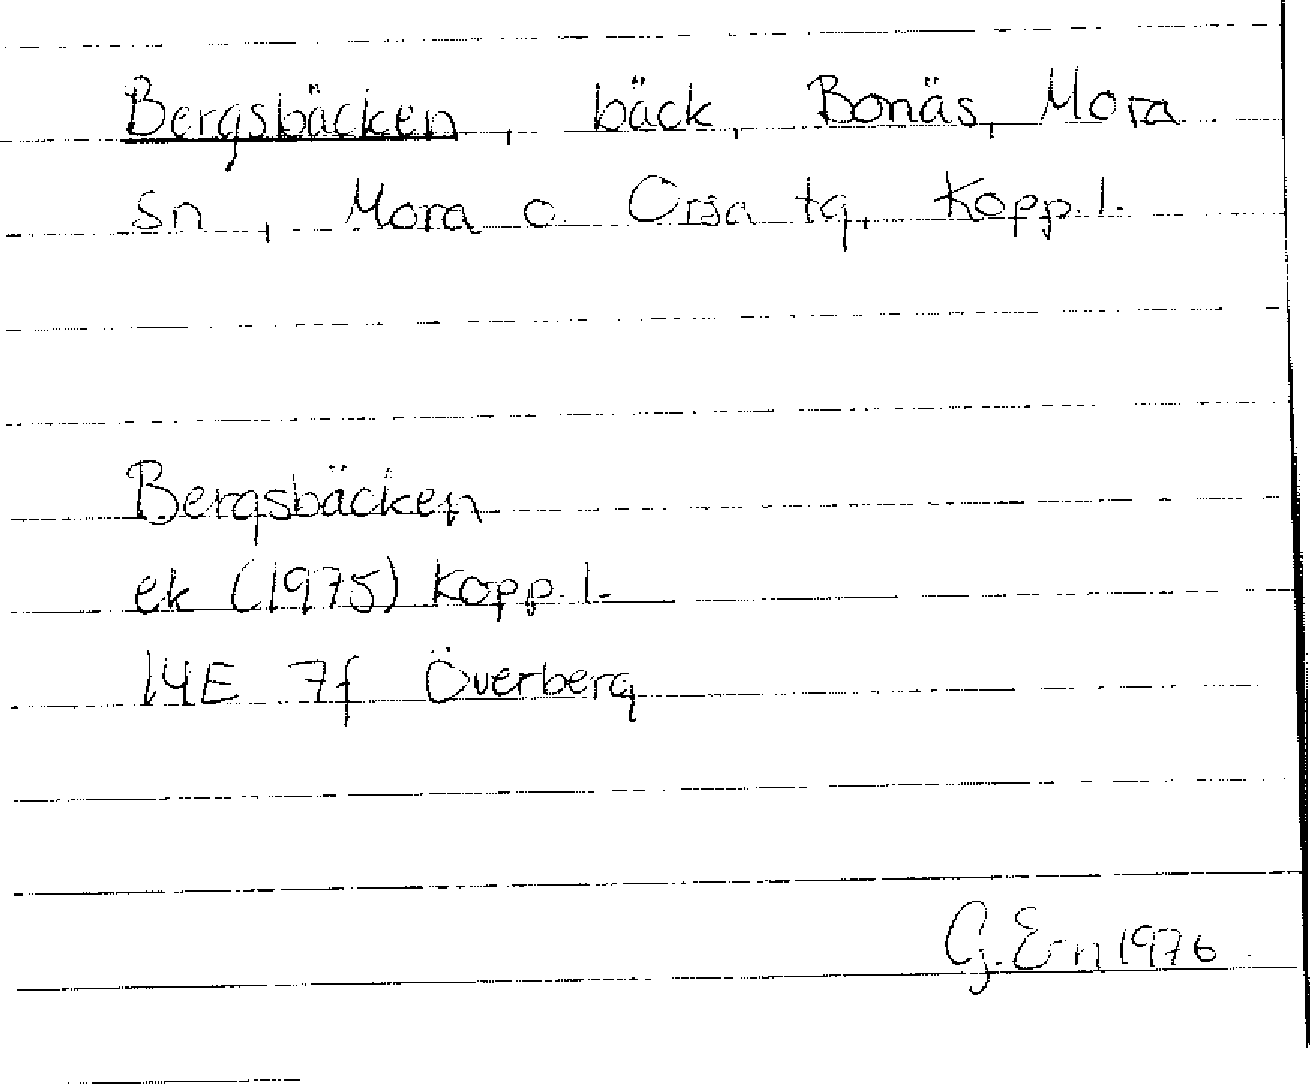 Bergsbäcken, bäck, Bonäs, Mora
sn, Mora o Orsa tg, Kopp. l.
Bergsbäcken
ek (1975) Kopp. l.
14E 7f Överberg
G. Ern 1976